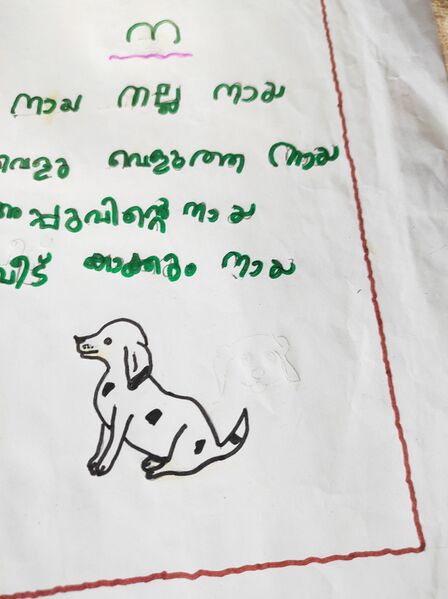 ന
നായ നല്ല നായ
വെളു വെളുത്ത നായ
പ്പുവിന്റെ നായ
വീട് കാക്കും നായ